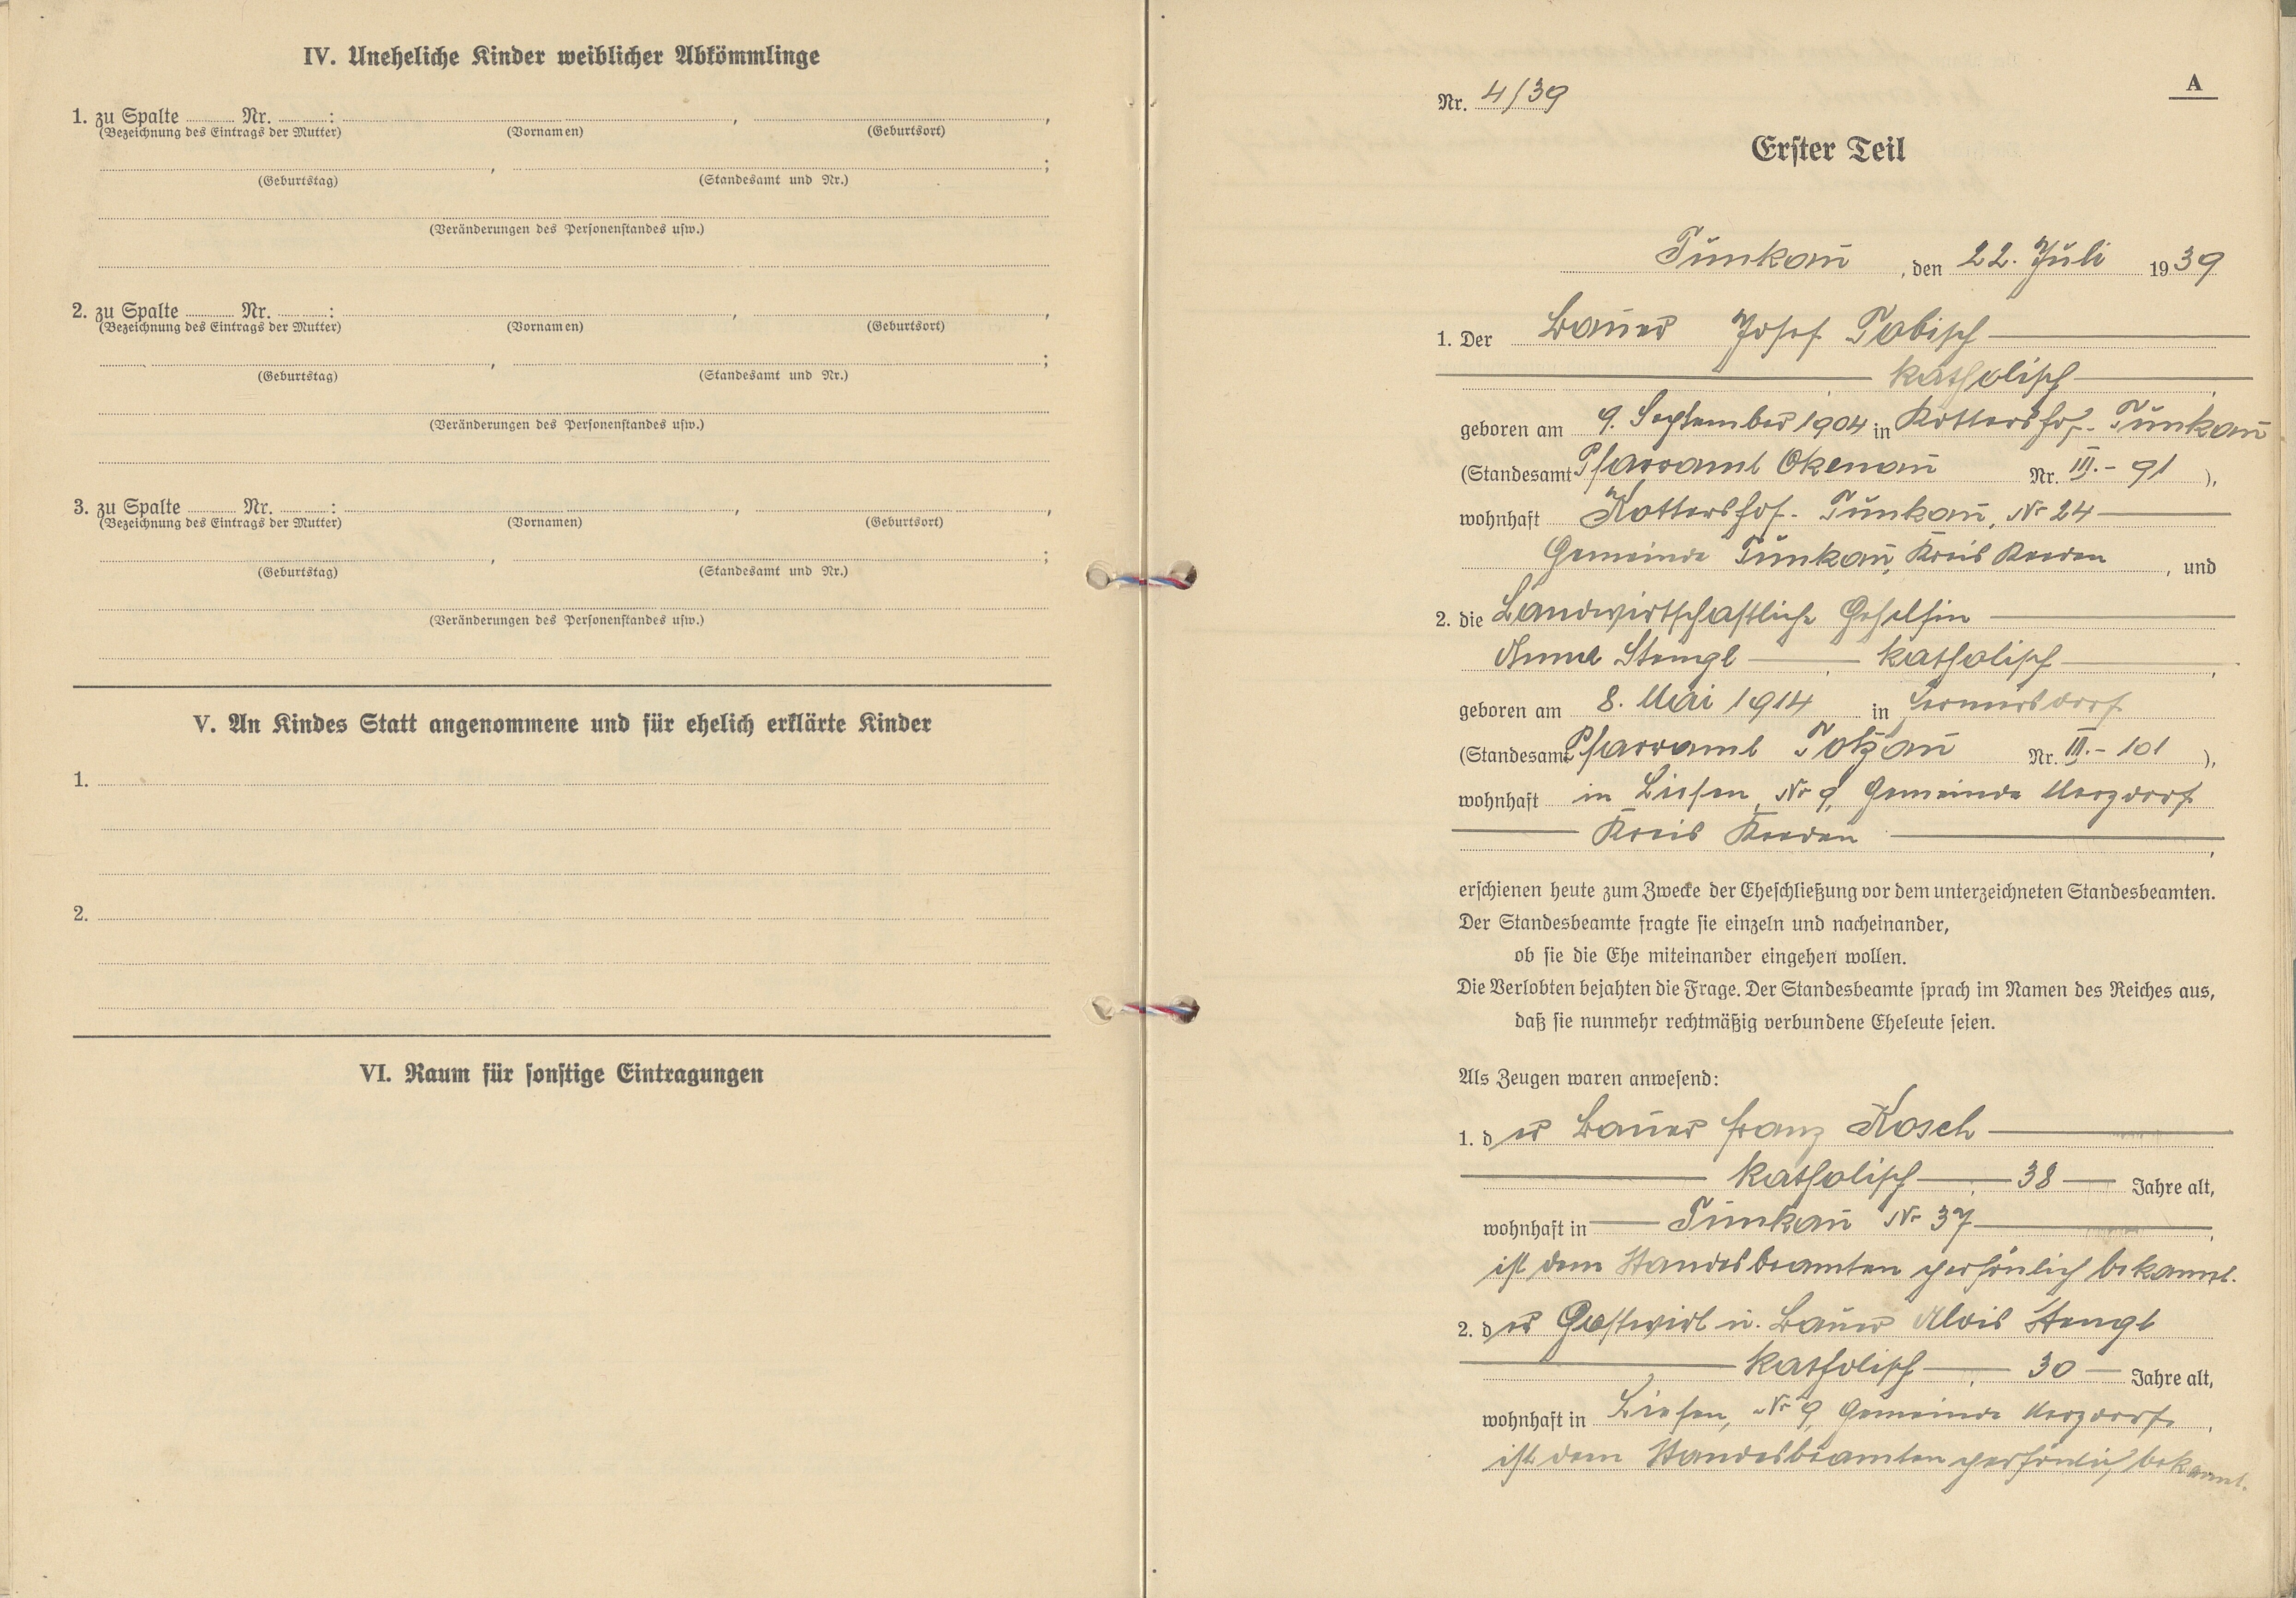 IV. Uneheliche Kinder weiblicher Abkömmlinge
1. zu Spalte ........ Nr. ........ : ........ , ........ ,
(Bezeichnung des Eintrags der Mutter) (Vornamen) (Geburtsort)
........ , ........ ;
(Geburtstag) (Standesamt und Nr.)
(Veränderungen des Personenstandes usw.)
2. zu Spalte ........ Nr. ........ : ........ , ........ ,
(Bezeichnung des Eintrags der Mutter) (Vornamen) (Geburtsort)
........ , ........ ;
(Geburtstag) (Standesamt und Nr.)
(Veränderungen des Personenstandes usw.)
3. zu Spalte ........ Nr. ........ : ........ , ........ ,
(Bezeichnung des Eintrags der Mutter) (Vornamen) (Geburtsort)
........ , ........ ;
(Geburtstag) (Standesamt und Nr.)
(Veränderungen des Personenstandes usw.)
V. An Kindes Statt angenommene und für ehelich erklärte Kinder
1.
2.
VI. Raum für sonstige Eintragungen
A
Nr. 4/39
Erster Teil
Tunkau, den 22. Juli 1939
1. Der Bauer Josef Tobisch
katholisch,
geboren am 9. September 1904 in Kottershof-Tunkau
(Standesamt Pfarramt Okenau Nr. III.- 91 ),
wohnhaft Kottershof-Tunkau, Nr 24
Gemeinde Tunkau, Kreis Kaaden, und
2. die Landwirtschaftliche Gehilfin
Anna Stengl, katholisch,
geboren am 8. Mai 1914 in
(Standesamt Pfarramt Totzau Nr. III.- 101 ),
wohnhaft in Liesen, Nr 9, Gemeinde Merzdorf
Kreis Kaaden,
erschienen heute zum Zwecke der Eheschließung vor dem unterzeichneten Standesbeamten.
Der Standesbeamte fragte sie einzeln und nacheinander,
ob sie die Ehe miteinander eingehen wollen.
Die Verlobten bejahten die Frage. Der Standesbeamte sprach im Namen des Reiches aus,
daß sie nunmehr rechtmäßig verbundene Eheleute seien.
Als Zeugen waren anwesend:
1. der Bauer Franz Kosch
katholisch, 38 Jahre alt,
wohnhaft in Tunkau Nr 37,
ist dem Standesbeamten persönlich bekannt.
2. der Gastwirt u. Bauer Alois Stengl
katholisch, 30 Jahre alt,
wohnhaft in Liesen, Nr 9, Gemeinde Merzdorf,
ist dem Standesbeamten persönlich bekannt.